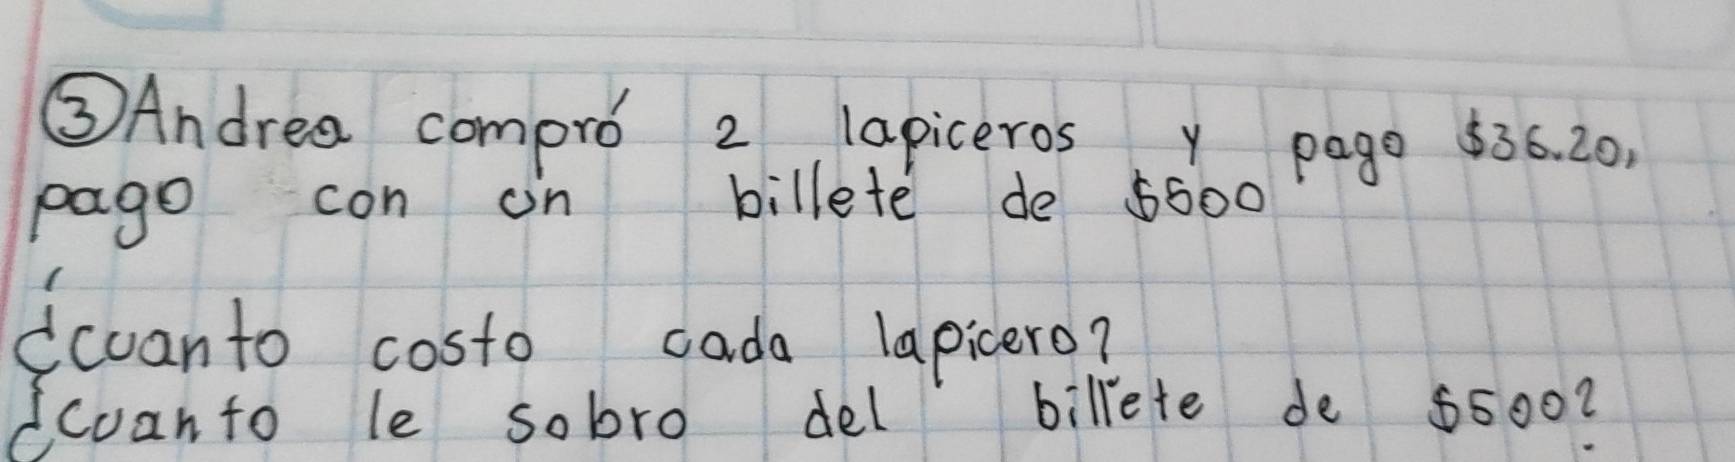 ③Andrea compró 2 lapiceros y pago $36.20,
pago con un billete de $500
¿cuanto costo cada lapicero?
¿cuanto le sobro del billete de $500?